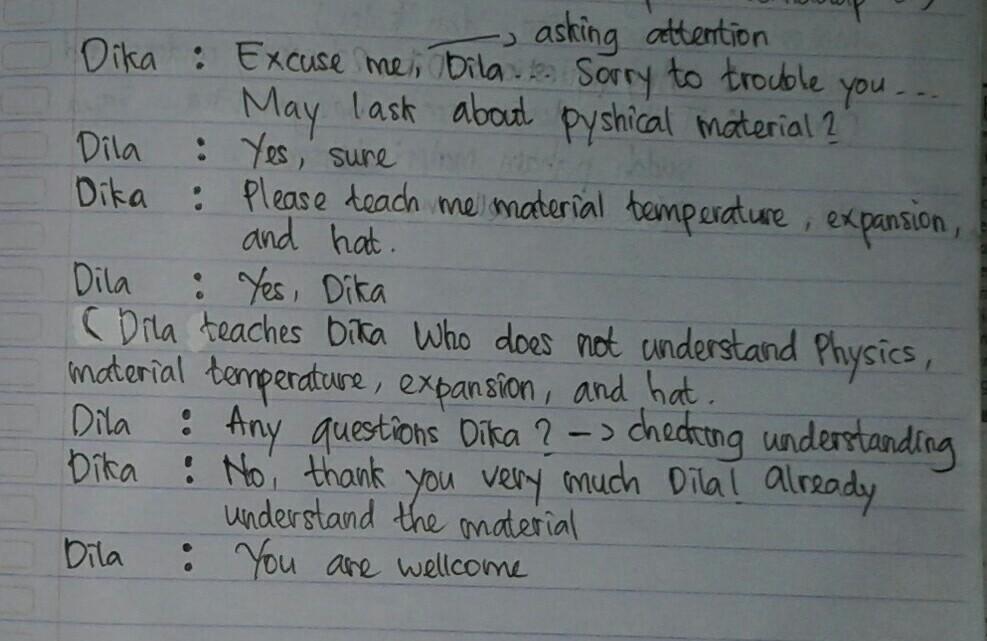 → asking attention
Dika : Excuse me, Dila... Sorry to trouble you...
May I ask about pyshical material?
Dila : Yes, sure
Dika : Please teach me material temperature, expansion,
and hat.
Dila : Yes, Dika
( Dila teaches Dika Who does not understand Physics,
material temperature, expansion, and hat.
Dila : Any questions Dika? -> checking understanding
Dika : No, thank you very much Dila! Already
understand the material
Dila : You are wellcome